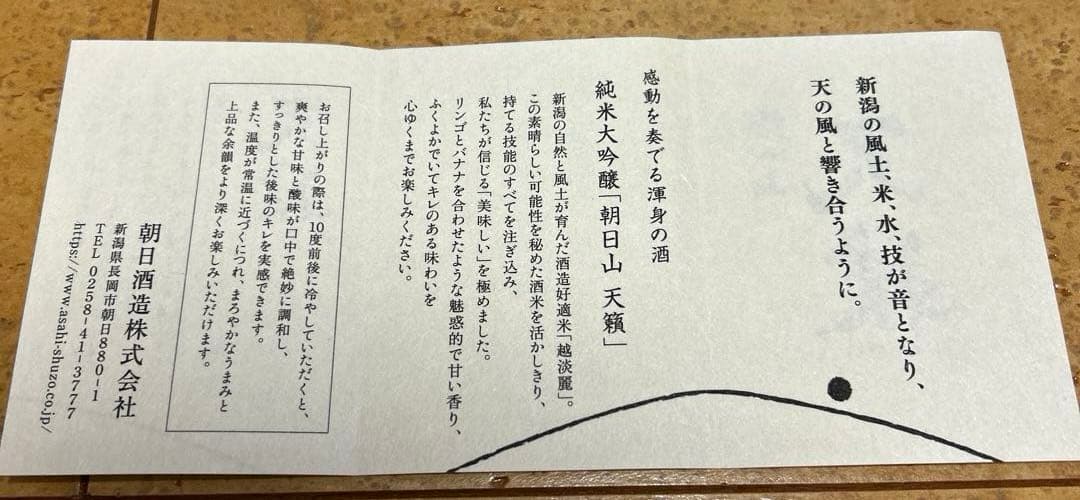 新潟の風土、米、水、技が音となり、
天の風と響き合うように。
感動を奏でる渾身の酒
純米大吟醸「朝日山 天籟」
新潟の自然と風土が育んだ酒造好適米「越淡麗」。
この素晴らしい可能性を秘めた酒米を活かしきり、
持てる技能のすべてを注ぎ込み、
私たちが信じる「美味しい」を極めました。
リンゴとバナナを合わせたような魅惑的で甘い香り、
ふくよかでいてキレのある味わいを
心ゆくまでお楽しみください。
お召し上がりの際は、10度前後に冷やしていただくと、
爽やかな甘味と酸味が口中で絶妙に調和し、
すっきりとした後味のキレを実感できます。
また、温度が常温に近づくにつれ、まろやかなうまみと
上品な余韻をより深くお楽しみいただけます。
朝日酒造株式会社
新潟県長岡市朝日880-1
TEL 0258-41-3777
https://www.asahi-shuzo.co.jp/